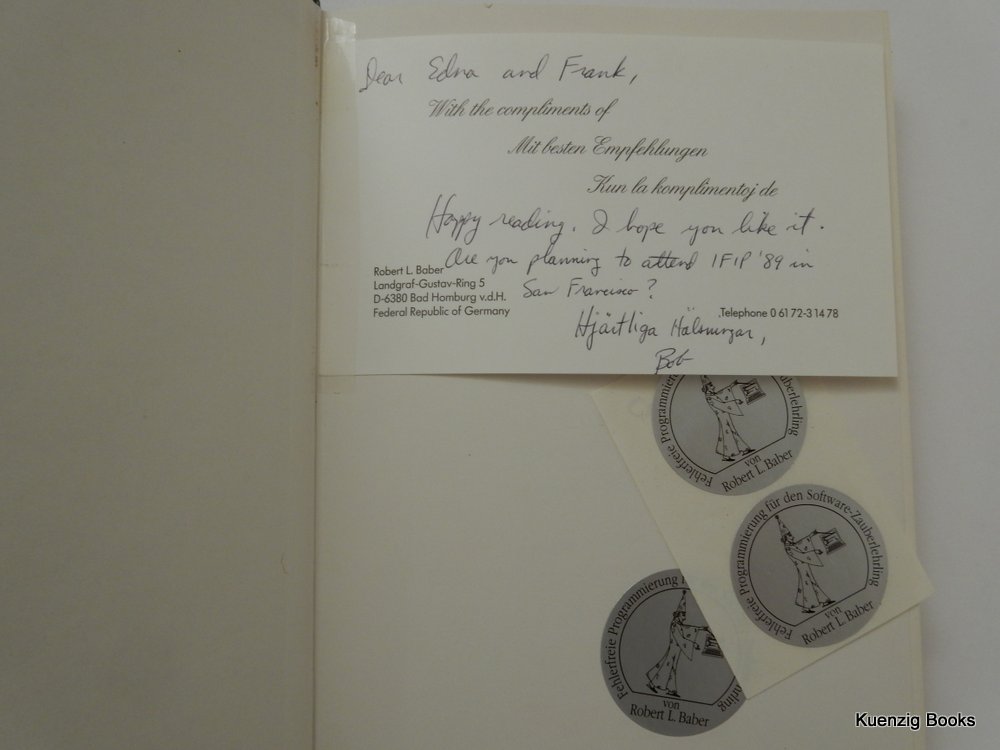 Dear Edna and Frank,
With the compliments of
Mit besten Empfehlungen
Kun la komplimentoj de
Happy reading. I hope you like it.
Are you planning to attend IFIP '89 in
San Francisco?
Robert L. Baber
Landgraf-Gustav-Ring 5
D-6380 Bad Homburg v.d.H.
Federal Republic of Germany
Telephone 0 61 72-3 14 78
Hjärtliga Hälsningar,
Bob
Fehlerfreie Programmierung
Zauberlehrling
von
Robert L. Baber
Fehlerfreie Programmierung für den Software-Zauberlehrling
von
Robert L. Baber
Fehlerfreie Programmierung
von
Robert L. Baber
Kuenzig Books